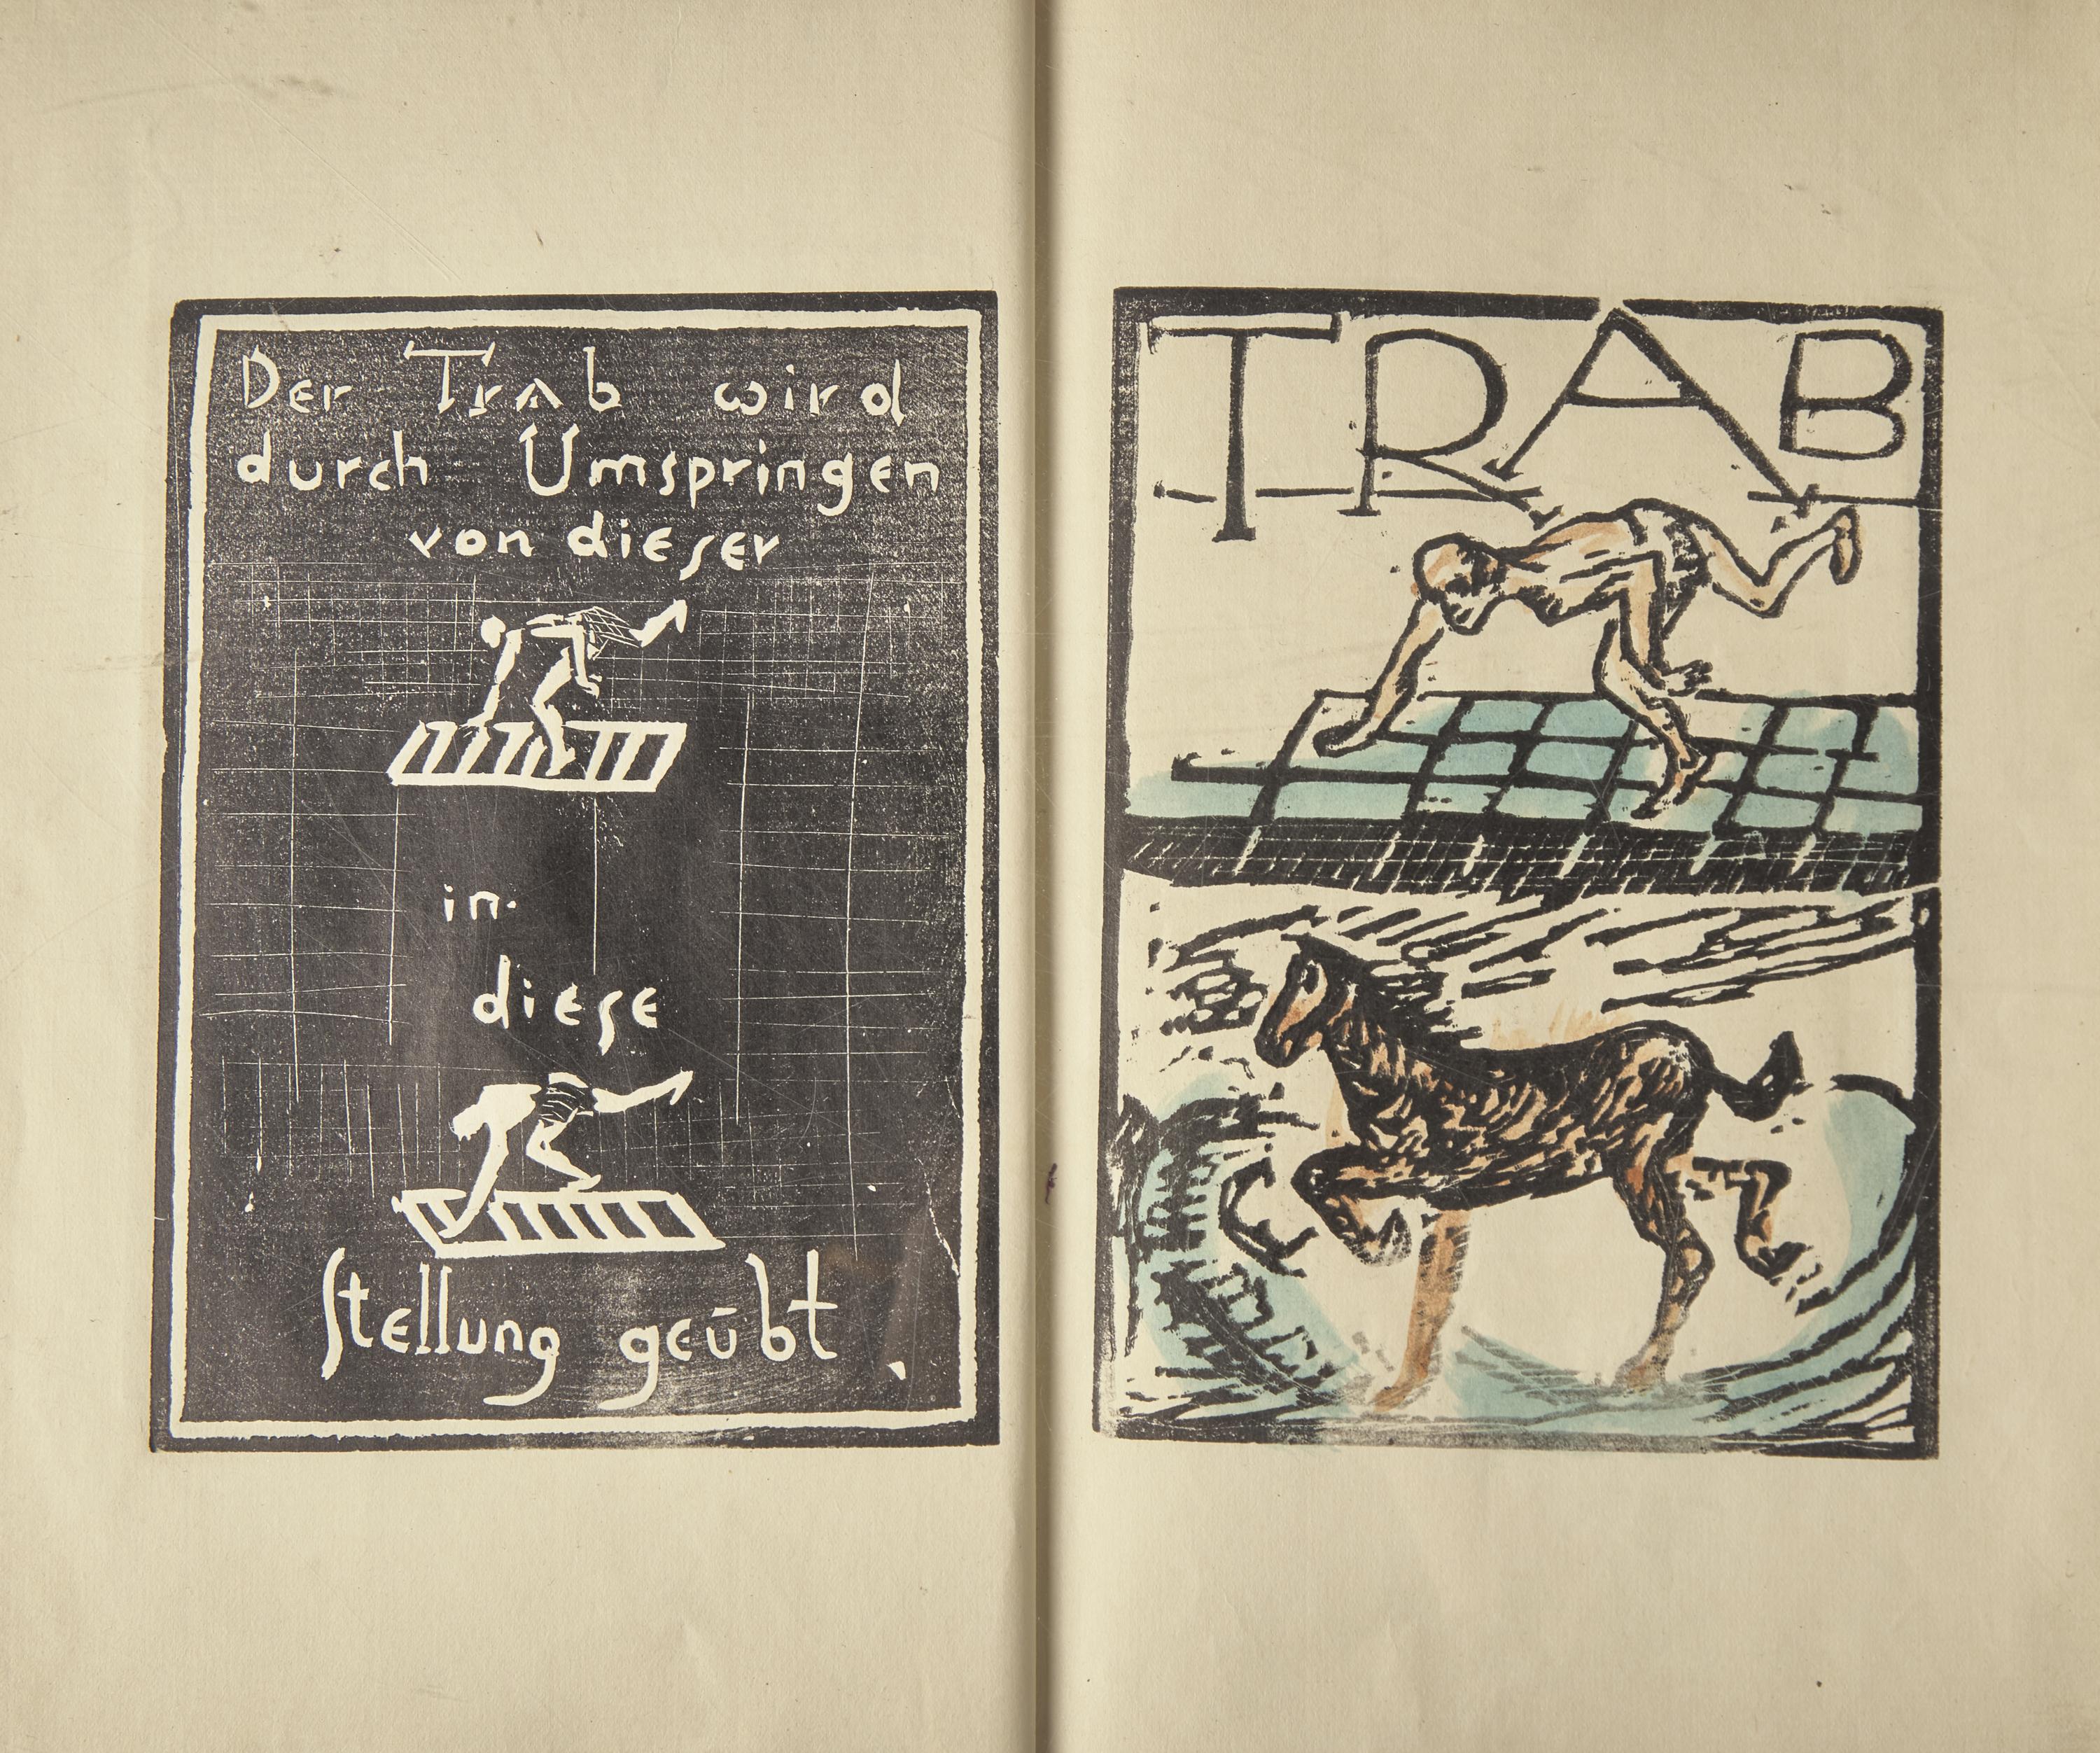 Der Trab wird
durch Umspringen
von dieser
in
diese
Stellung geübt
TRAB